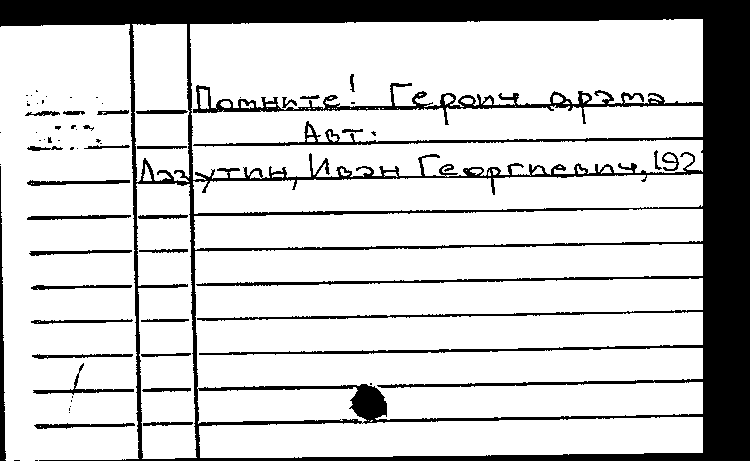 Помните! Героич. драма.
Авт.
Лазутин, Иван Георгиевич, 192